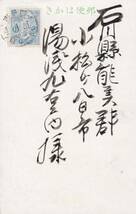 きかは便郵
石川縣能美郡
小松町八日市
湯浅九�内様